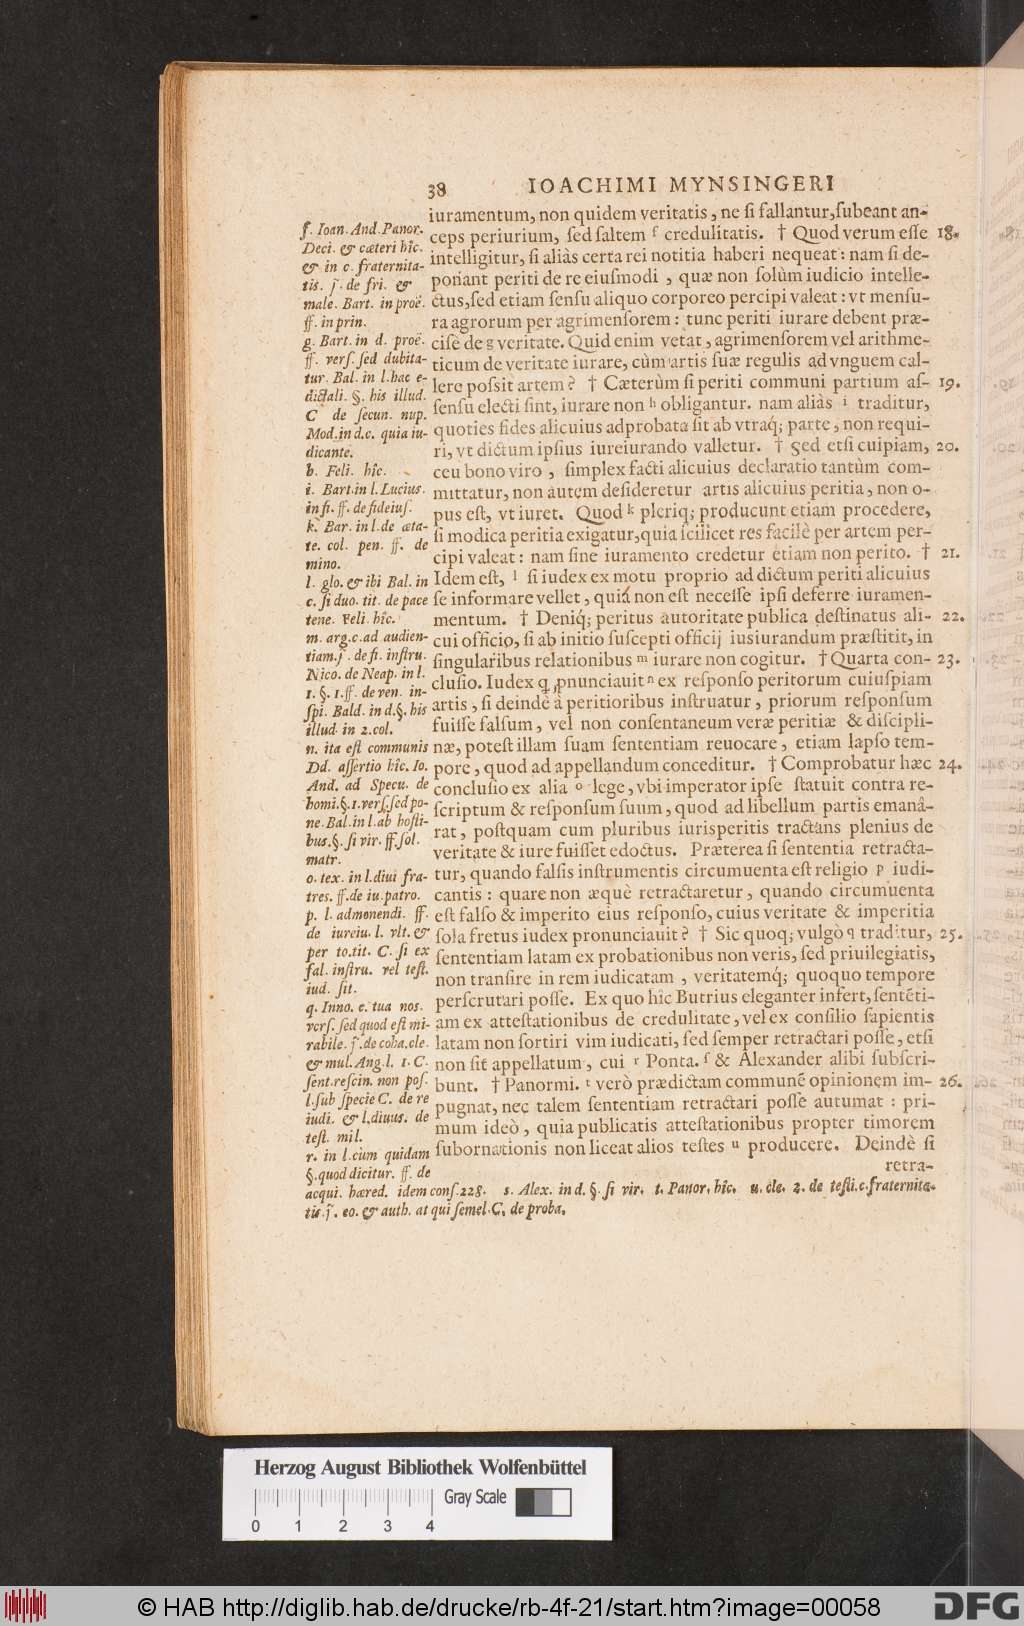 38 IOACHIMI MYNSINGERI
iuramentum, non quidem veritatis, ne si fallantur, subeant an-
ceps periurium, sed saltem f credulitatis. † Quod verum esse 18.
intelligitur, si aliàs certa rei notitia haberi nequeat: nam si de-
ponant periti de re eiusmodi, quæ non solùm iudicio intelle-
ctus, sed etiam sensu aliquo corporeo percipi valeat: vt mensu-
ra agrorum per agrimensorem: tunc periti iurare debent præ-
cisè de g veritate. Quid enim vetat, agrimensorem vel arithme-
ticum de veritate iurare, cùm artis suæ regulis ad vnguem cal-
lere possit artem? † Cæterùm si periti communi partium as- 19.
sensu electi sint, iurare non h obligantur. nam aliàs i traditur,
quoties fides alicuius adprobata sit ab vtraq; parte, non requi-
ri, vt dictum ipsius iureiurando valletur. † Sed etsi cuipiam, 20.
ceu bono viro, simplex facti alicuius declaratio tantùm com-
mittatur, non autem desideretur artis alicuius peritia, non o-
pus est, vt iuret. Quod k pleriq; producunt etiam procedere,
si modica peritia exigatur, quia scilicet res facilè per artem per-
cipi valeat: nam sine iuramento credetur etiam non perito. † 21.
Idem est, l si iudex ex motu proprio ad dictum periti alicuius
se informare vellet, quia non est necesse ipsi deferre iuramen-
mentum. † Deniq; peritus autoritate publica destinatus ali- 22.
cui officio, si ab initio suscepti officij iusiurandum præstitit, in
singularibus relationibus m iurare non cogitur. † Quarta con- 23.
clusio. Iudex q ꝓnunciauit n ex responso peritorum cuiuspiam
artis, si deindè à peritioribus instruatur, priorum responsum
fuisse falsum, vel non consentaneum veræ peritiæ & discipli-
næ, potest illam suam sententiam reuocare, etiam lapso tem-
pore, quod ad appellandum conceditur. † Comprobatur hæc 24.
conclusio ex alia o lege, vbi imperator ipse statuit contra re-
scriptum & responsum suum, quod ad libellum partis emanâ-
rat, postquam cum pluribus iurisperitis tractans plenius de
veritate & iure fuisset edoctus. Præterea si sententia retracta-
tur, quando falsis instrumentis circumuenta est religio p iudi-
cantis: quare non æquè retractaretur, quando circumuenta
est falso & imperito eius responso, cuius veritate & imperitia
sola fretus iudex pronunciauit? † Sic quoq; vulgò q traditur, 25.
sententiam latam ex probationibus non veris, sed priuilegiatis,
non transire in rem iudicatam, veritatemq; quoquo tempore
perscrutari posse. Ex quo hîc Butrius eleganter infert, sentēti-
am ex attestationibus de credulitate, vel ex consilio sapientis
latam non sortiri vim iudicati, sed semper retractari posse, etsi
non sit appellatum, cui r Ponta. s & Alexander alibi subscri-
bunt. † Panormi. t verò prædictam communē opinionem im- 26.
pugnat, nec talem sententiam retractari posse autumat: pri-
mum ideò, quia publicatis attestationibus propter timorem
subornationis non liceat alios testes u producere. Deindè si
retra-
f. Ioan. And. Panor.
Deci. & cæteri hîc.
& in c. fraternita-
tis. j. de fri. &
male. Bart. in proë.
ff. in prin.
g. Bart. in d. proë.
ff. vers. sed dubita-
tur. Bal. in l. hac e-
dictali. §. his illud.
C de secun. nup.
Mod. in d.c. quia iu-
dicante.
h. Feli. hîc.
i. Bart. in l. Lucius.
in fi. ff. de fideius.
k. Bar. in l. de æta-
te. col. pen. ff. de
mino.
l. glo. & ibi Bal. in
c. si duo. tit. de pace
tene. Feli. hîc.
m. arg. c. ad audien-
tiam. j. de fi. instru.
Nico. de Neap. in l.
1. §. 1. ff. de ven. in-
spi. Bald. in d. §. his
illud in 2. col.
n. ita est communis
Dd. assertio hîc. Io.
And. ad Specu. de
homi. §. 1. vers. sed po-
ne. Bal. in l. ab hosti-
bus. §. si vir. ff. sol.
matr.
o. tex. in l. diui fra-
tres. ff. de iu. patro.
p. l. admonendi. ff.
de iureiu. l. vlt. &
per to. tit. C. si ex
fal. instru. vel test.
iud. sit.
q. Inno. c. tua nos.
vers. sed quod est mi-
rabile. j. de coha. cle.
& mul. Ang. l. 1. C.
sent. rescin. non pos.
l. sub specie C. de re
iudi. & l. diuus. de
test. mil.
r. in l. cùm quidam
§. quod dicitur. ff. de
acqui. hæred. idem cons. 228. s. Alex. in d. §. si vir. t. Panor. hîc. u. cle. 2. de testi. c. fraternita-
tis. j. eo. & auth. at qui semel C. de proba.
Herzog August Bibliothek Wolfenbüttel
Gray Scale
0 1 2 3 4
© HAB http://diglib.hab.de/drucke/rb-4f-21/start.htm?image=00058
DFG